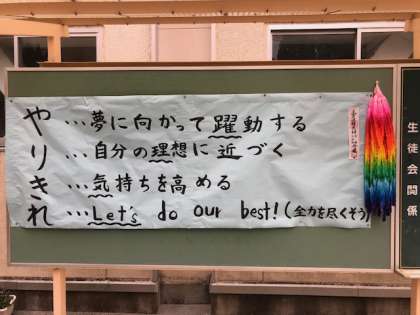 や…夢に向かって躍動する
り…自分の理想に近づく
き…気持ちを高める
れ…Let's do our best!(全力を尽くそう)
生徒会関係